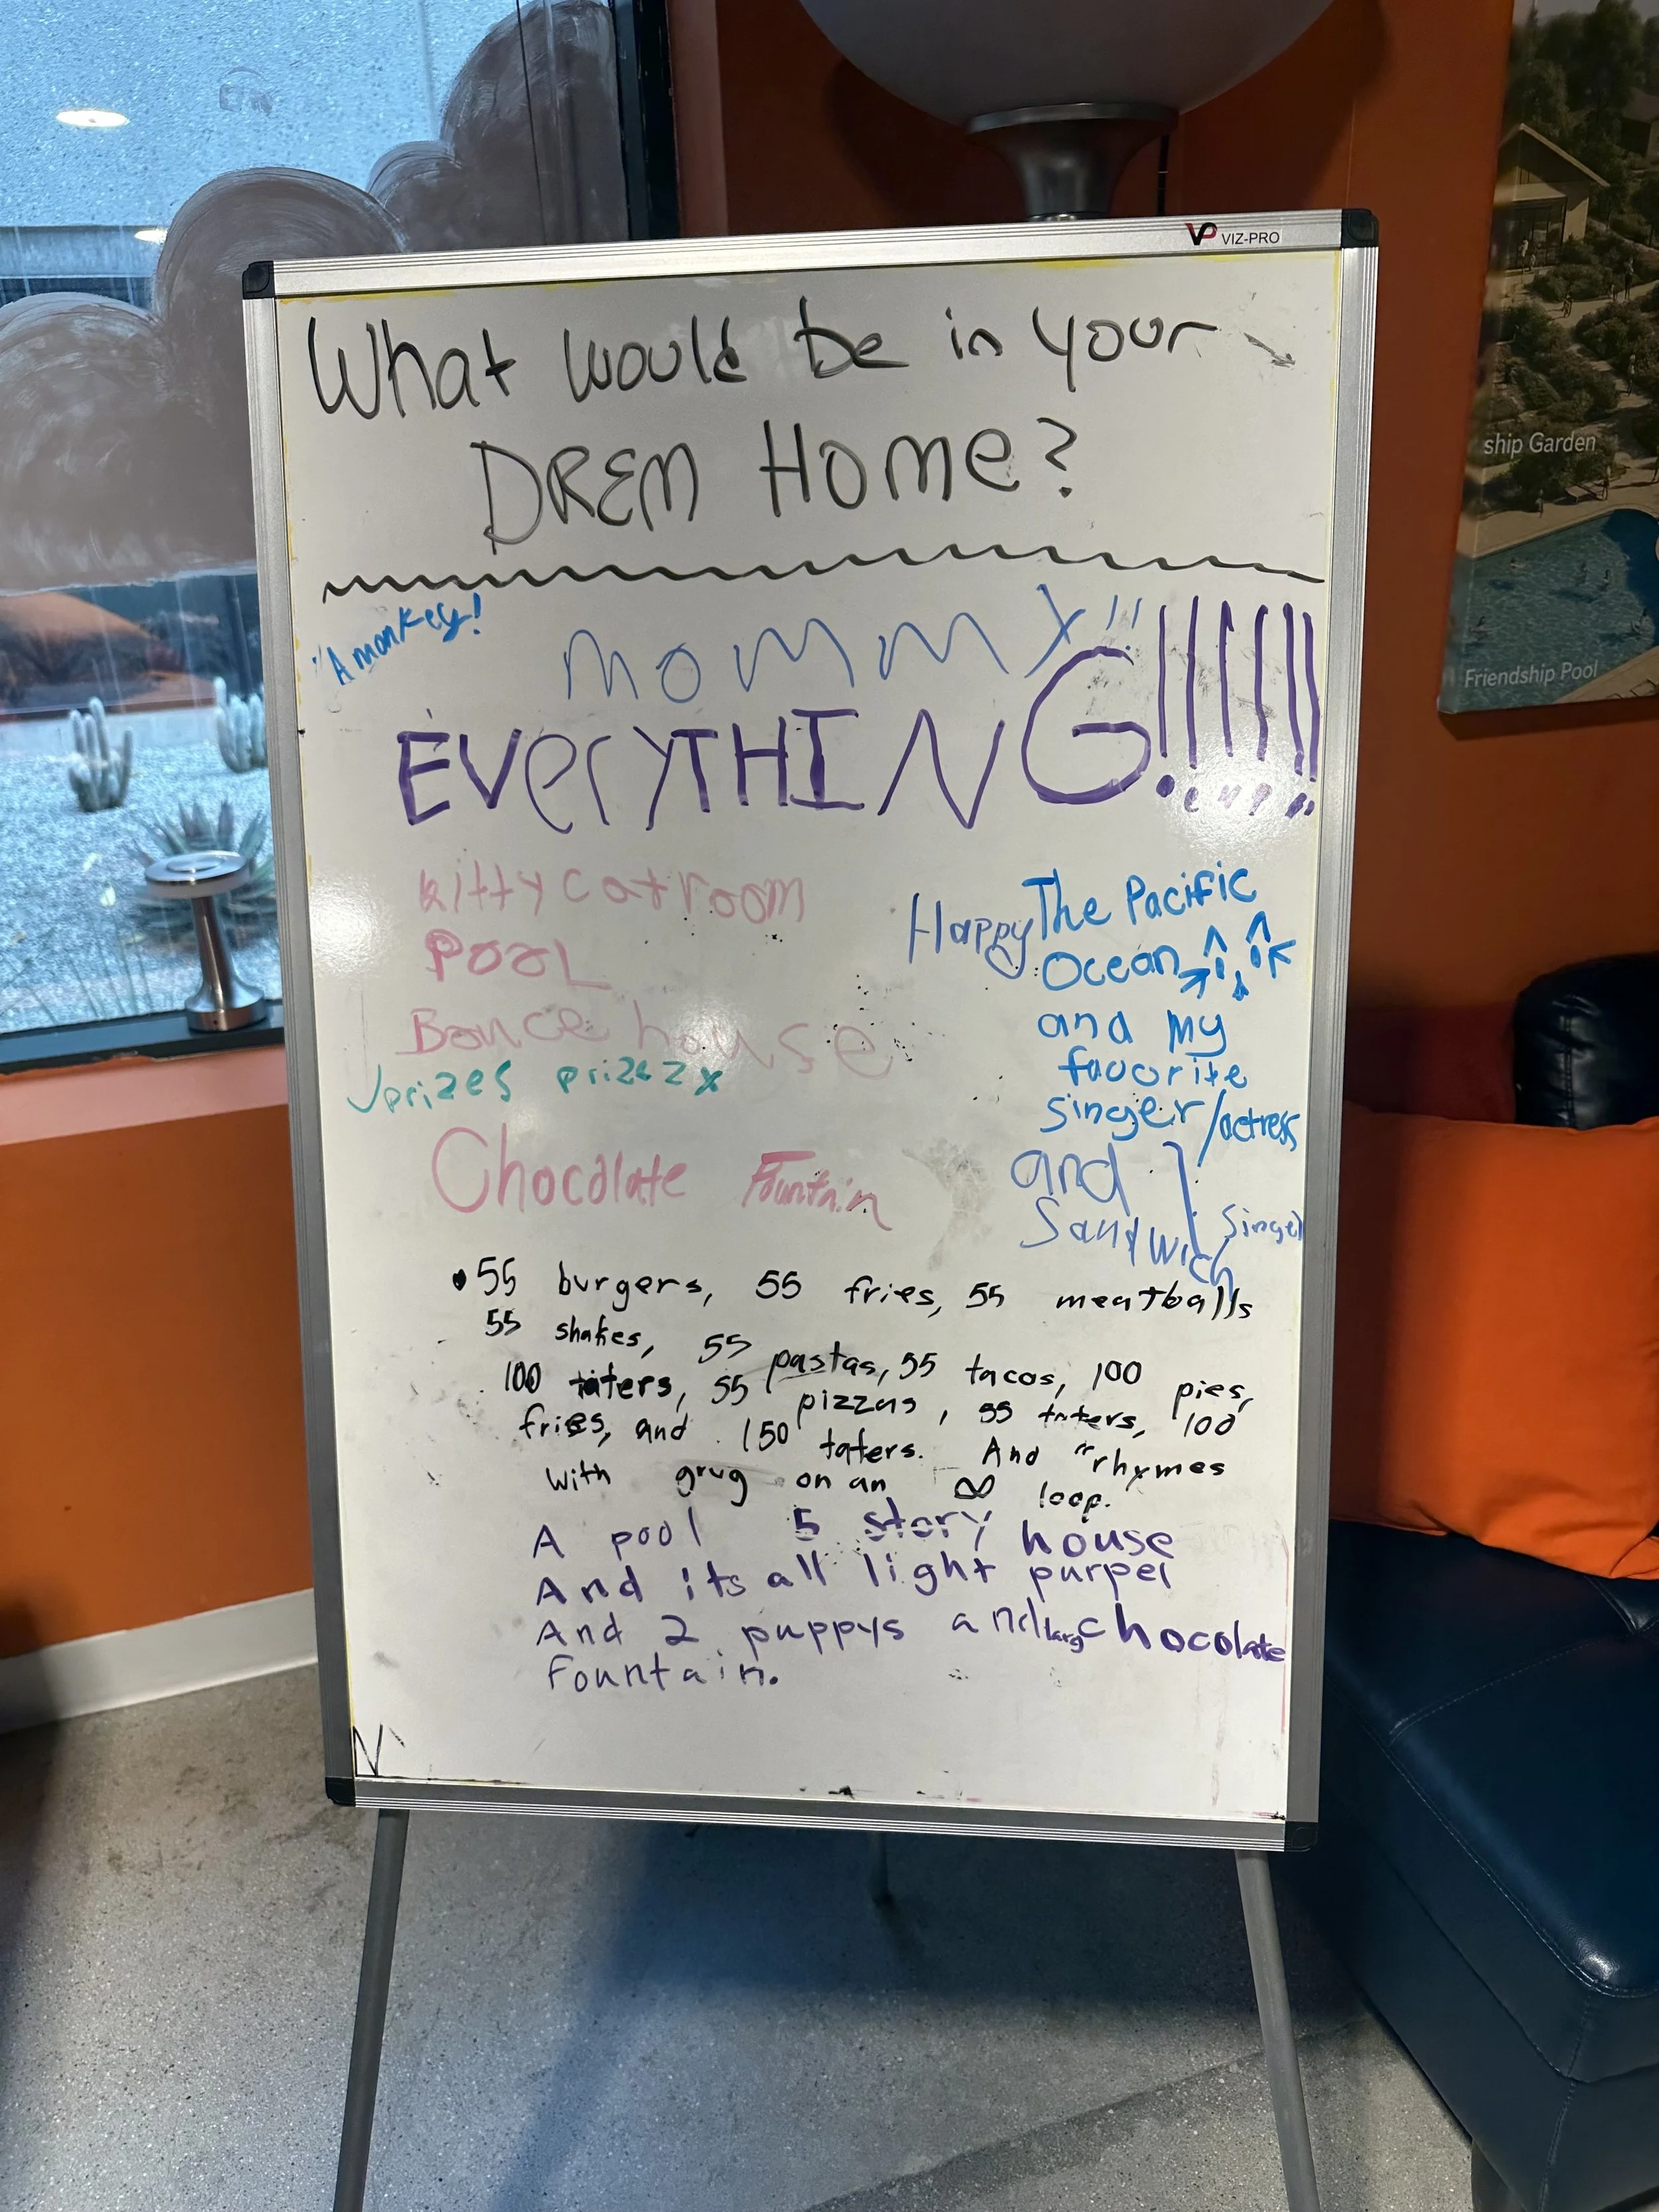 VP VIZ-PRO
What would be in your
DREM Home?
"A monkey!
MOMMY!!
EVerYTHING!!!!!!
kitty cat room
POOL
Bounce house
prizes prizezx
Chocolate Fountain
Happy
The Pacific
Ocean
and my
favorite
singer/actress
and
Sandwich
Singer
• 55 burgers, 55 fries, 55 meatballs
55 shakes, 55 pastas, 55 tacos, 100 pies,
100 taters, 55 pizzas, 55 taters, 100
fries, and 150 taters. And "rhymes
with grug on an ∞ loop.
A pool 5 story house
And its all light purpel
And 2 puppys and larg chocolate
Fountain.
ship Garden
Friendship Pool